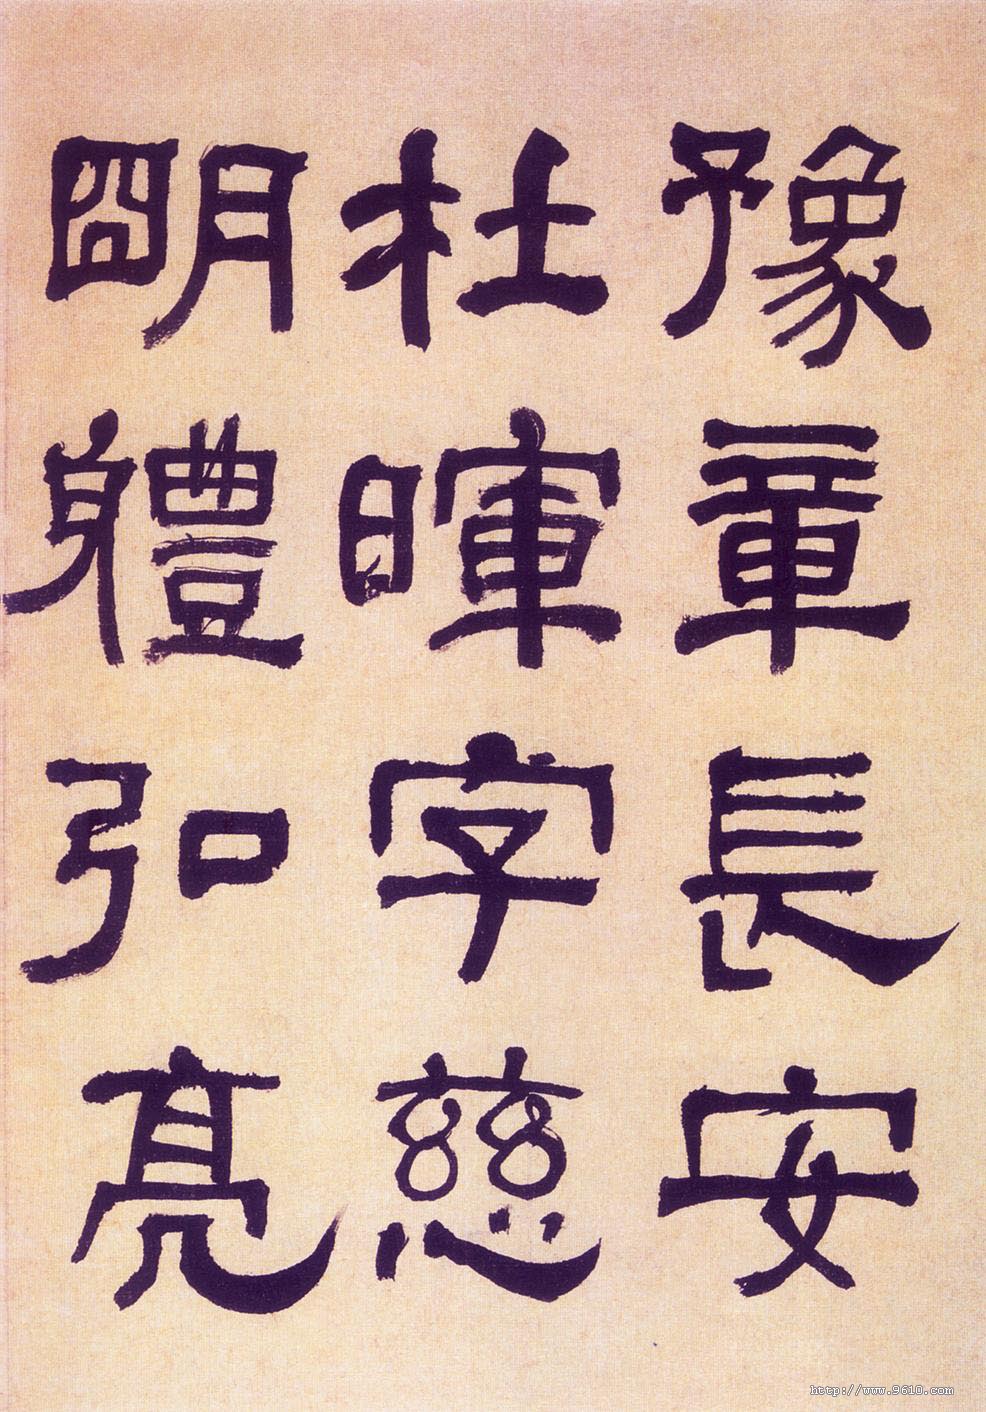 豫章長安
杜暉字慈
明軆弘亮
http://www.9610.com